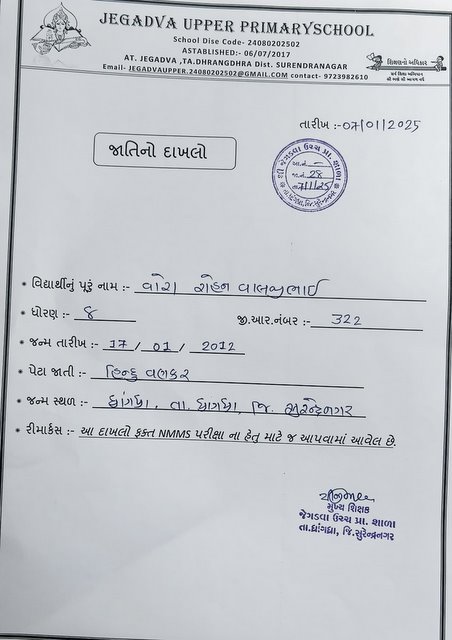 JEGADVA UPPER PRIMARYSCHOOL
School Dise Code- 24080202502
ASTABLISHED:- 06/07/2017
AT. JEGADVA ,TA.DHRANGDHRA Dist. SURENDRANAGAR
Email- JEGADVAUPPER.24080202502@GMAIL.COM contact- 9723982610
શિક્ષણનો અધિકાર
સર્વ શિક્ષા અભિયાન
સૌ ભણે સૌ આગળ વધે
તારીખ :-07/01/2025
જાતિનો દાખલો
શ્રી જેગડવા ઉચ્ચ પ્રા. શાળા
આ.નં. -
જા.નં. 28
તા. 7/1/25
તા.ધ્રાંગધ્રા, જિ.સુરેન્દ્રનગર
• વિદ્યાર્થીનું પૂરું નામ :- વોરા રોહન વાલજીભાઈ
• ધોરણ :- 8 જી.આર.નંબર :- 322
• જન્મ તારીખ :- 17 / 01 / 2012
• પેટા જાતી :- હિન્દુ વણકર
• જન્મ સ્થળ :- ધ્રાંગધ્રા, તા. ધ્રાંગધ્રા, જિ. સુરેન્દ્રનગર
• રીમાર્કસ :- આ દાખલો ફક્ત NMMS પરીક્ષા ના હેતુ માટે જ આપવામાં આવેલ છે.
મુખ્ય શિક્ષક
જેગડવા ઉચ્ચ પ્રા. શાળા
તા.ધ્રાંગધ્રા, જિ.સુરેન્દ્રનગર